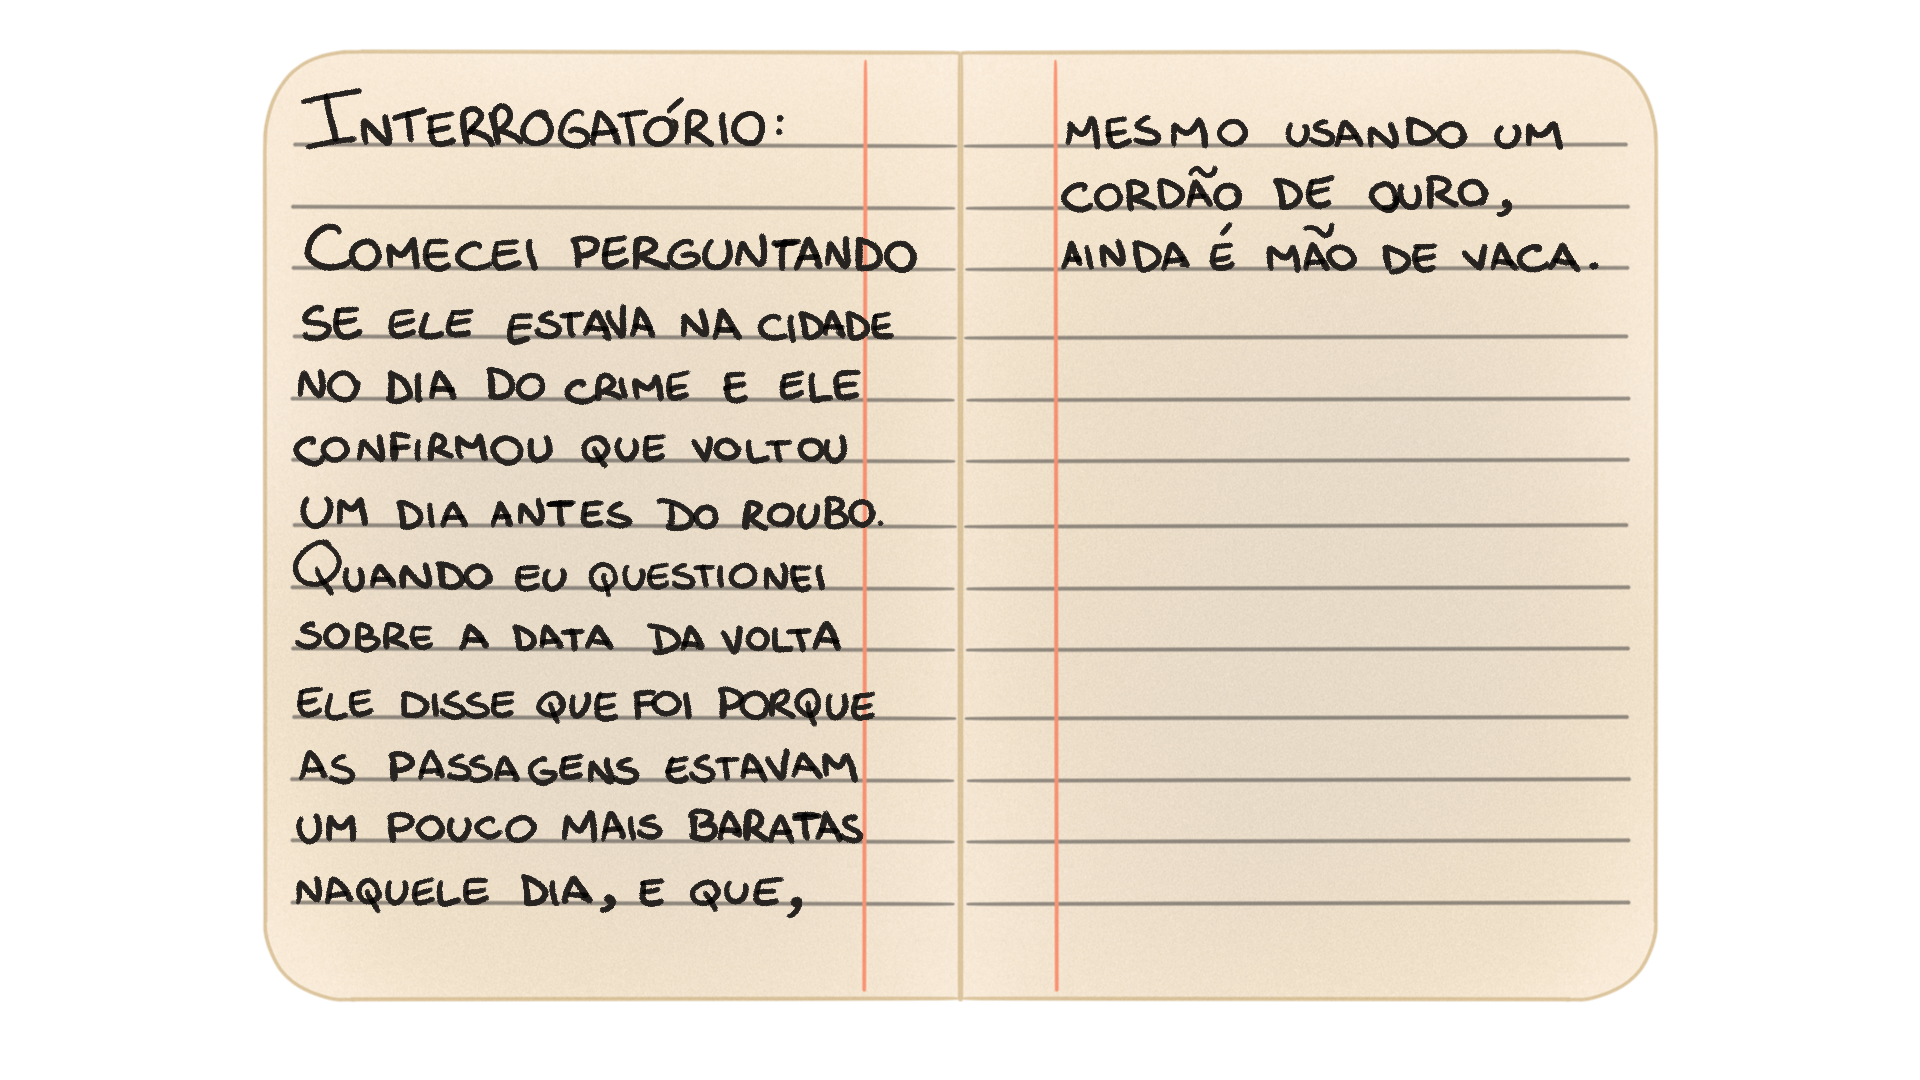 INTERROGATÓRIO:
COMECEI PERGUNTANDO
SE ELE ESTAVA NA CIDADE
NO DIA DO CRIME E ELE
CONFIRMOU QUE VOLTOU
UM DIA ANTES DO ROUBO.
QUANDO EU QUESTIONEI
SOBRE A DATA DA VOLTA
ELE DISSE QUE FOI PORQUE
AS PASSAGENS ESTAVAM
UM POUCO MAIS BARATAS
NAQUELE DIA, E QUE,
MESMO USANDO UM
CORDÃO DE OURO,
AINDA É MÃO DE VACA.